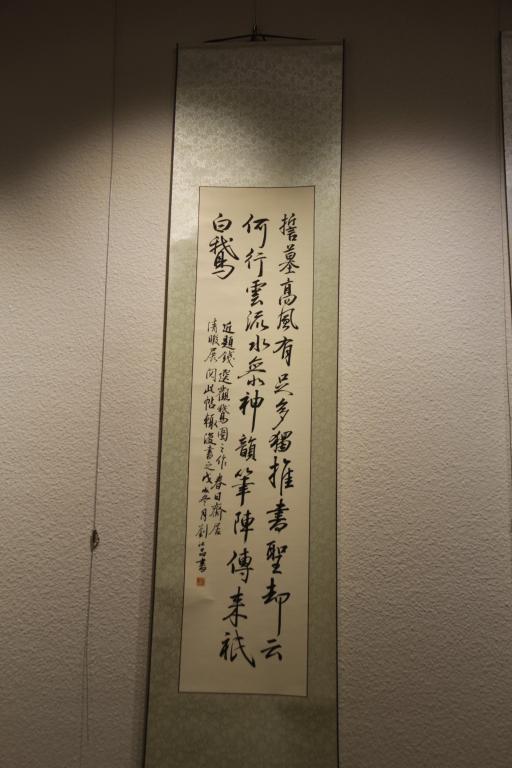 誓墓高風有足多獨推書聖却云
何行雲流水參神韻筆陣傳來祇
白鵝
近題錢選觀鵝圖之作春日齋居
清暇展閱此帖輒復書之戊冬月劉